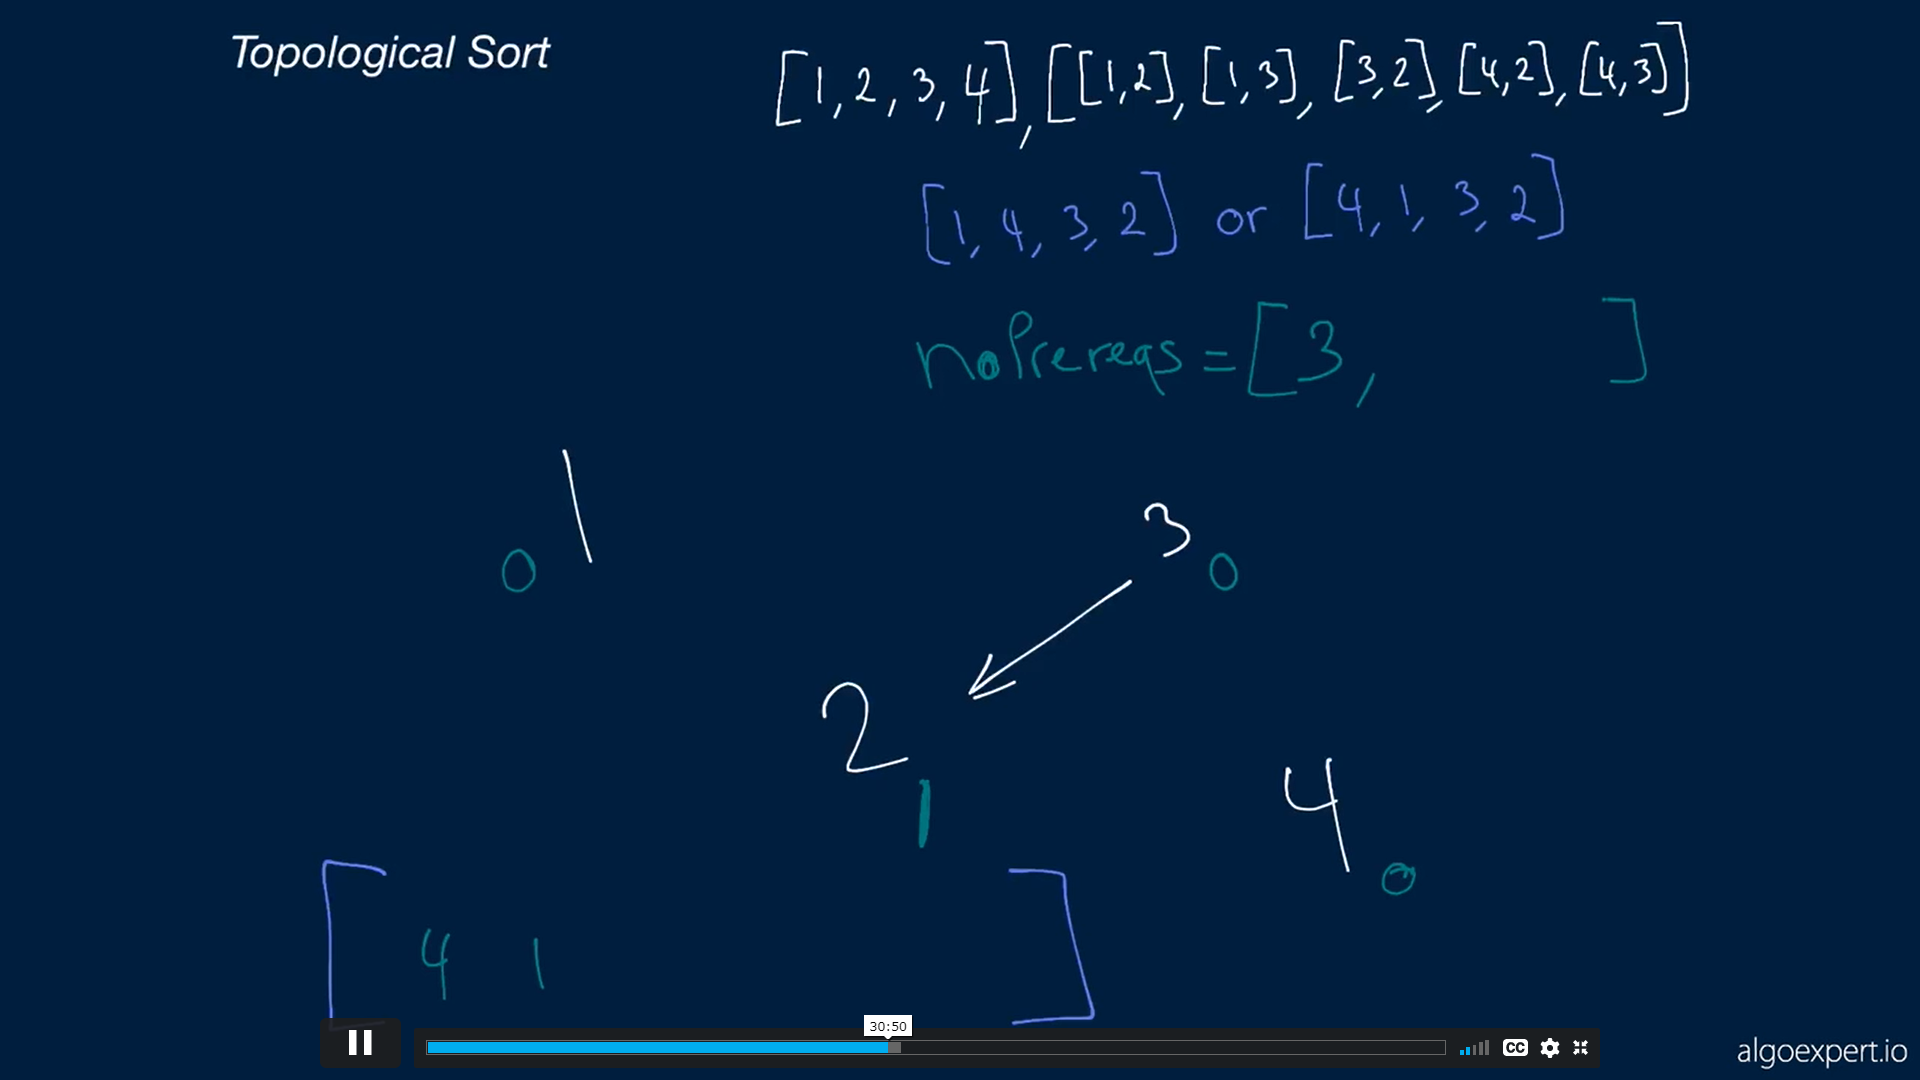 Topological Sort
[1, 2, 3, 4], [[1, 2], [1, 3], [3, 2], [4, 2], [4, 3]]
[1, 4, 3, 2] or [4, 1, 3, 2]
noPrereqs = [3, ]
1
0
3
0
2
1
4
0
[4 1 ]
30:50
CC
algoexpert.io